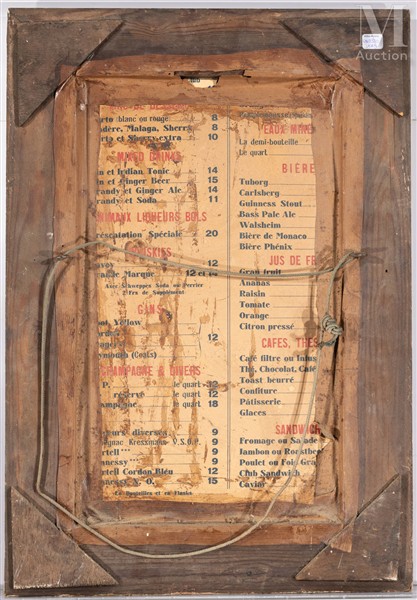 M
Auction
DE
blanc ou rouge 8
Madère, Malaga, Sherry 8
extra 10
MIXED DRINKS
et Indian Tonic 14
et Ginger Beer 15
randy et Ginger Ale 14
randy et Soda 11
LIQUEURS BOLS
Présentation Spéciale 20
12
Marque 12 et
Avec Schweppes Soda ou Perrier
2 Frs de Supplément
GINS
Yellow
12
ymouth (Coats)
CHAMPAGNE & DIVERS
le quart 32
le quart 12
le quart 18
diverses 9
gnac Kressmann V.S.O.P. 9
rtell *** 9
nnessy *** 9
rtell Cordon Bleu 12
nnessy X. O. 15
EAUX MINE
La demi-bouteille
Le quart
BIÈRE
Tuborg
Carlsberg
Guinness Stout
Bass Pale Ale
Walsheim
Bière de Monaco
Bière Phénix
JUS DE FR
Grape fruit
Ananas
Raisin
Tomate
Orange
Citron pressé
CAFES, THES
Café filtre ou Infus
Thé, Chocolat, Café
Toast beurré
Confiture
Pâtisserie
Glaces
SANDWICH
Fromage ou Salade
Jambon ou Roastbee
Poulet ou Foie Gra
Club Sandwich
Caviar